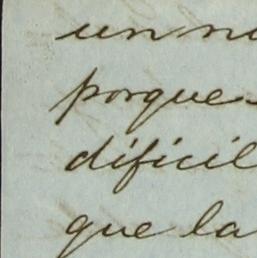 un
porque
dificil
que la